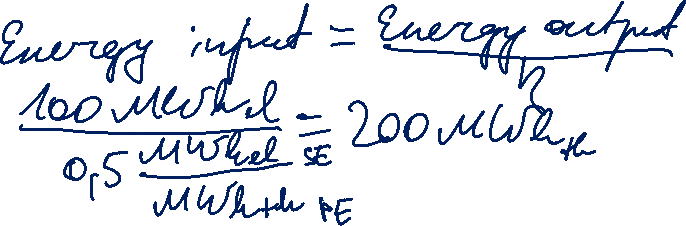 Energy input = Energy output / η
100 MWhel / 0,5 MWhel SE / MWhth PE = 200 MWhth